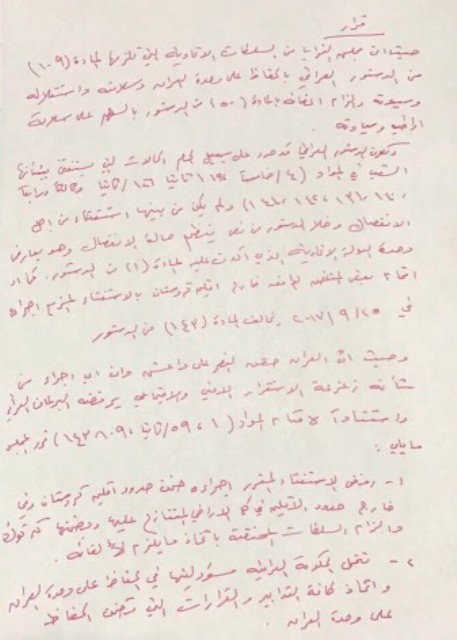 قرار
حيث ان مجلس النواب من السلطات الاتحادية التي تلزمها المادة (١٠٩)
من الدستور العراقي بالحفاظ على وحدة العراق وسلامته واستقلاله
وسيادته والزام اعضائه بالمادة (٥٠) من الدستور بالسهر على سلامة
اراضيه وسيادته .
ولكون الدستور العراقي قد حدد على سبيل الحالات التي يستفتى بشأنها
الشعب في المواد (٤/خامساً ١١٩، ثانياً ١٢٦/ثانياً وثالثاً ورابعاً
١٣١، ١٤٠، ١٤٢، ) ولم يكن من بينها استفتاء من اجل
الانفصال وخلا الدستور من نص ينظم حالة الانفصال وهو يعارض
وحدة الدولة الاتحادية الذي اكدت عليه المادة (١) من الدستور . كما ان
بعض المناطق خارج اقليم كردستان بالاستفتاء المزمع اجراؤه
في ٢٥ / ٩ / ٢٠١٧ يخالف المادة (١٤٣) من الدستور
وحيث ان العراق حقق النصر على داعش وان اي اجراء من
شأنه زعزعة الاستقرار الامني والاجتماعي يرفضه البرلمان العراقي
واستناداً لاحكام المواد (١ ، ٥٩/ثانياً ، ١٠٩ ، ١٤٣) قرر المجلس
مايلي :
١- رفض الاستفتاء المقرر اجراءه ضمن حدود اقليم كردستان وفي
خارج حدود الاقليم في كل الاراضي المتنازع عليها ومن ضمنها كركوك
والزام السلطات المختصة باتخاذ مايلزم لالغائه .
٢- تتحمل الحكومة العراقية مسؤوليتها في الحفاظ على وحدة العراق
واتخاذ كافة التدابير والقرارات التي تضمن الحفاظ
على وحدة العراق .